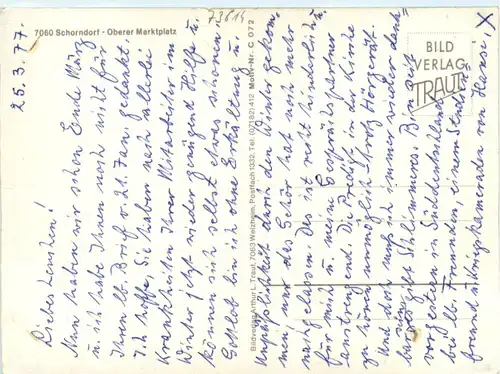 7060 Schorndorf - Oberer Marktplatz
73814
25. 3. 77.
Liebes Lenchen!
Nun haben wir schon Ende März
u. ich habe Ihnen noch nicht für
Ihren lb. Brief v. 21. Jan. gedankt.
Ich hoffe, Sie haben nach allerlei
Krankheiten Ihrer Mitarbeiter im
Winter jetzt wieder genügend Hilfe u.
können sich selbst etwas schonen.
Gottlob bin ich ohne Erkältung u.
durch den Winter gekom-
men, nur das Gehör hat noch mehr
nachgelassen. Das ist recht hinderlich
für mich u. meine Gesprächspartner
anstrengend. Die Predigt in der Kirche
zu hören unmöglich trotz Hörgerät.
Und doch muß ich immer wieder denken
es gibt Schlimmeres. Bin seit
vorgestern in Süddeutschland
bei lb. Freunden, einem Studien-
freund u. Kriegskameraden von Hansi.
X
BILD
VERLAG
TRAUT
Bildverlag Arthur L. Traut, 7063 Welzheim, Postfach 1332, Tel. (07182) 412 Motiv-Nr. C 072